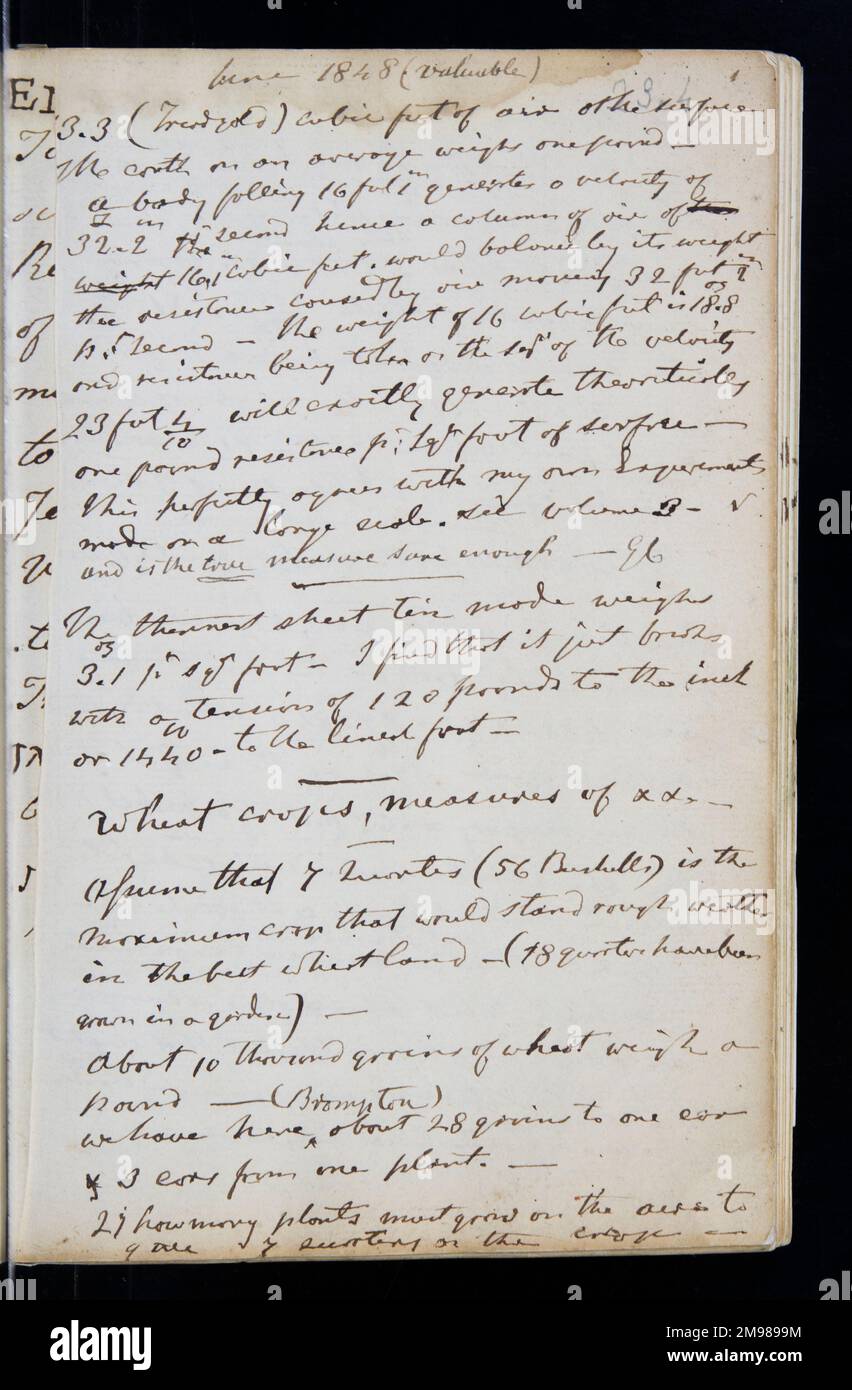 June 1848 (valuable)
1
13.3 (Tredgold) cubic feet of air at the surface
of the earth on an average weighs one pound —
a body falling 16 feet 1 in generates a velocity of
32.2 pr second hence a column of air of the
weight 16.1 cubic feet. would balance by its weight
the resistance caused by air moving 32 feet 2 in
pr second — the weight of 16 cubic feet is 18.8 oz
and resistance being taken as the sqr of the velocity
23 feet 4/10 will exactly generate theoretically
one pound resistance pr sqr foot of surface —
This perfectly agrees with my own Experiments
made on a large scale. see volume 3 —
and is the true measure sure enough — GC
The thinnest sheet tin made weighs
3.1 oz pr sqr foot — I find that it just breaks
with a tension of 120 pounds to the inch
or 1440 — to the lineal foot —
Wheat crops, measures of &&. —
Assume that 7 Quarters (56 Bushells) is the
maximum crop that would stand rough weather
in the best wheat land — (18 quarters have been
grown in a garden) —
About 10 thousand grains of wheat weigh a
pound — (Brompton)
we have here, about 28 grains to one ear
& 3 ears from one plant. —
2y how many plants must grow on the acre to
give 7 quarters on the
El
to
of
alamy
alamy
Image ID: M9899M
www.alamy.com